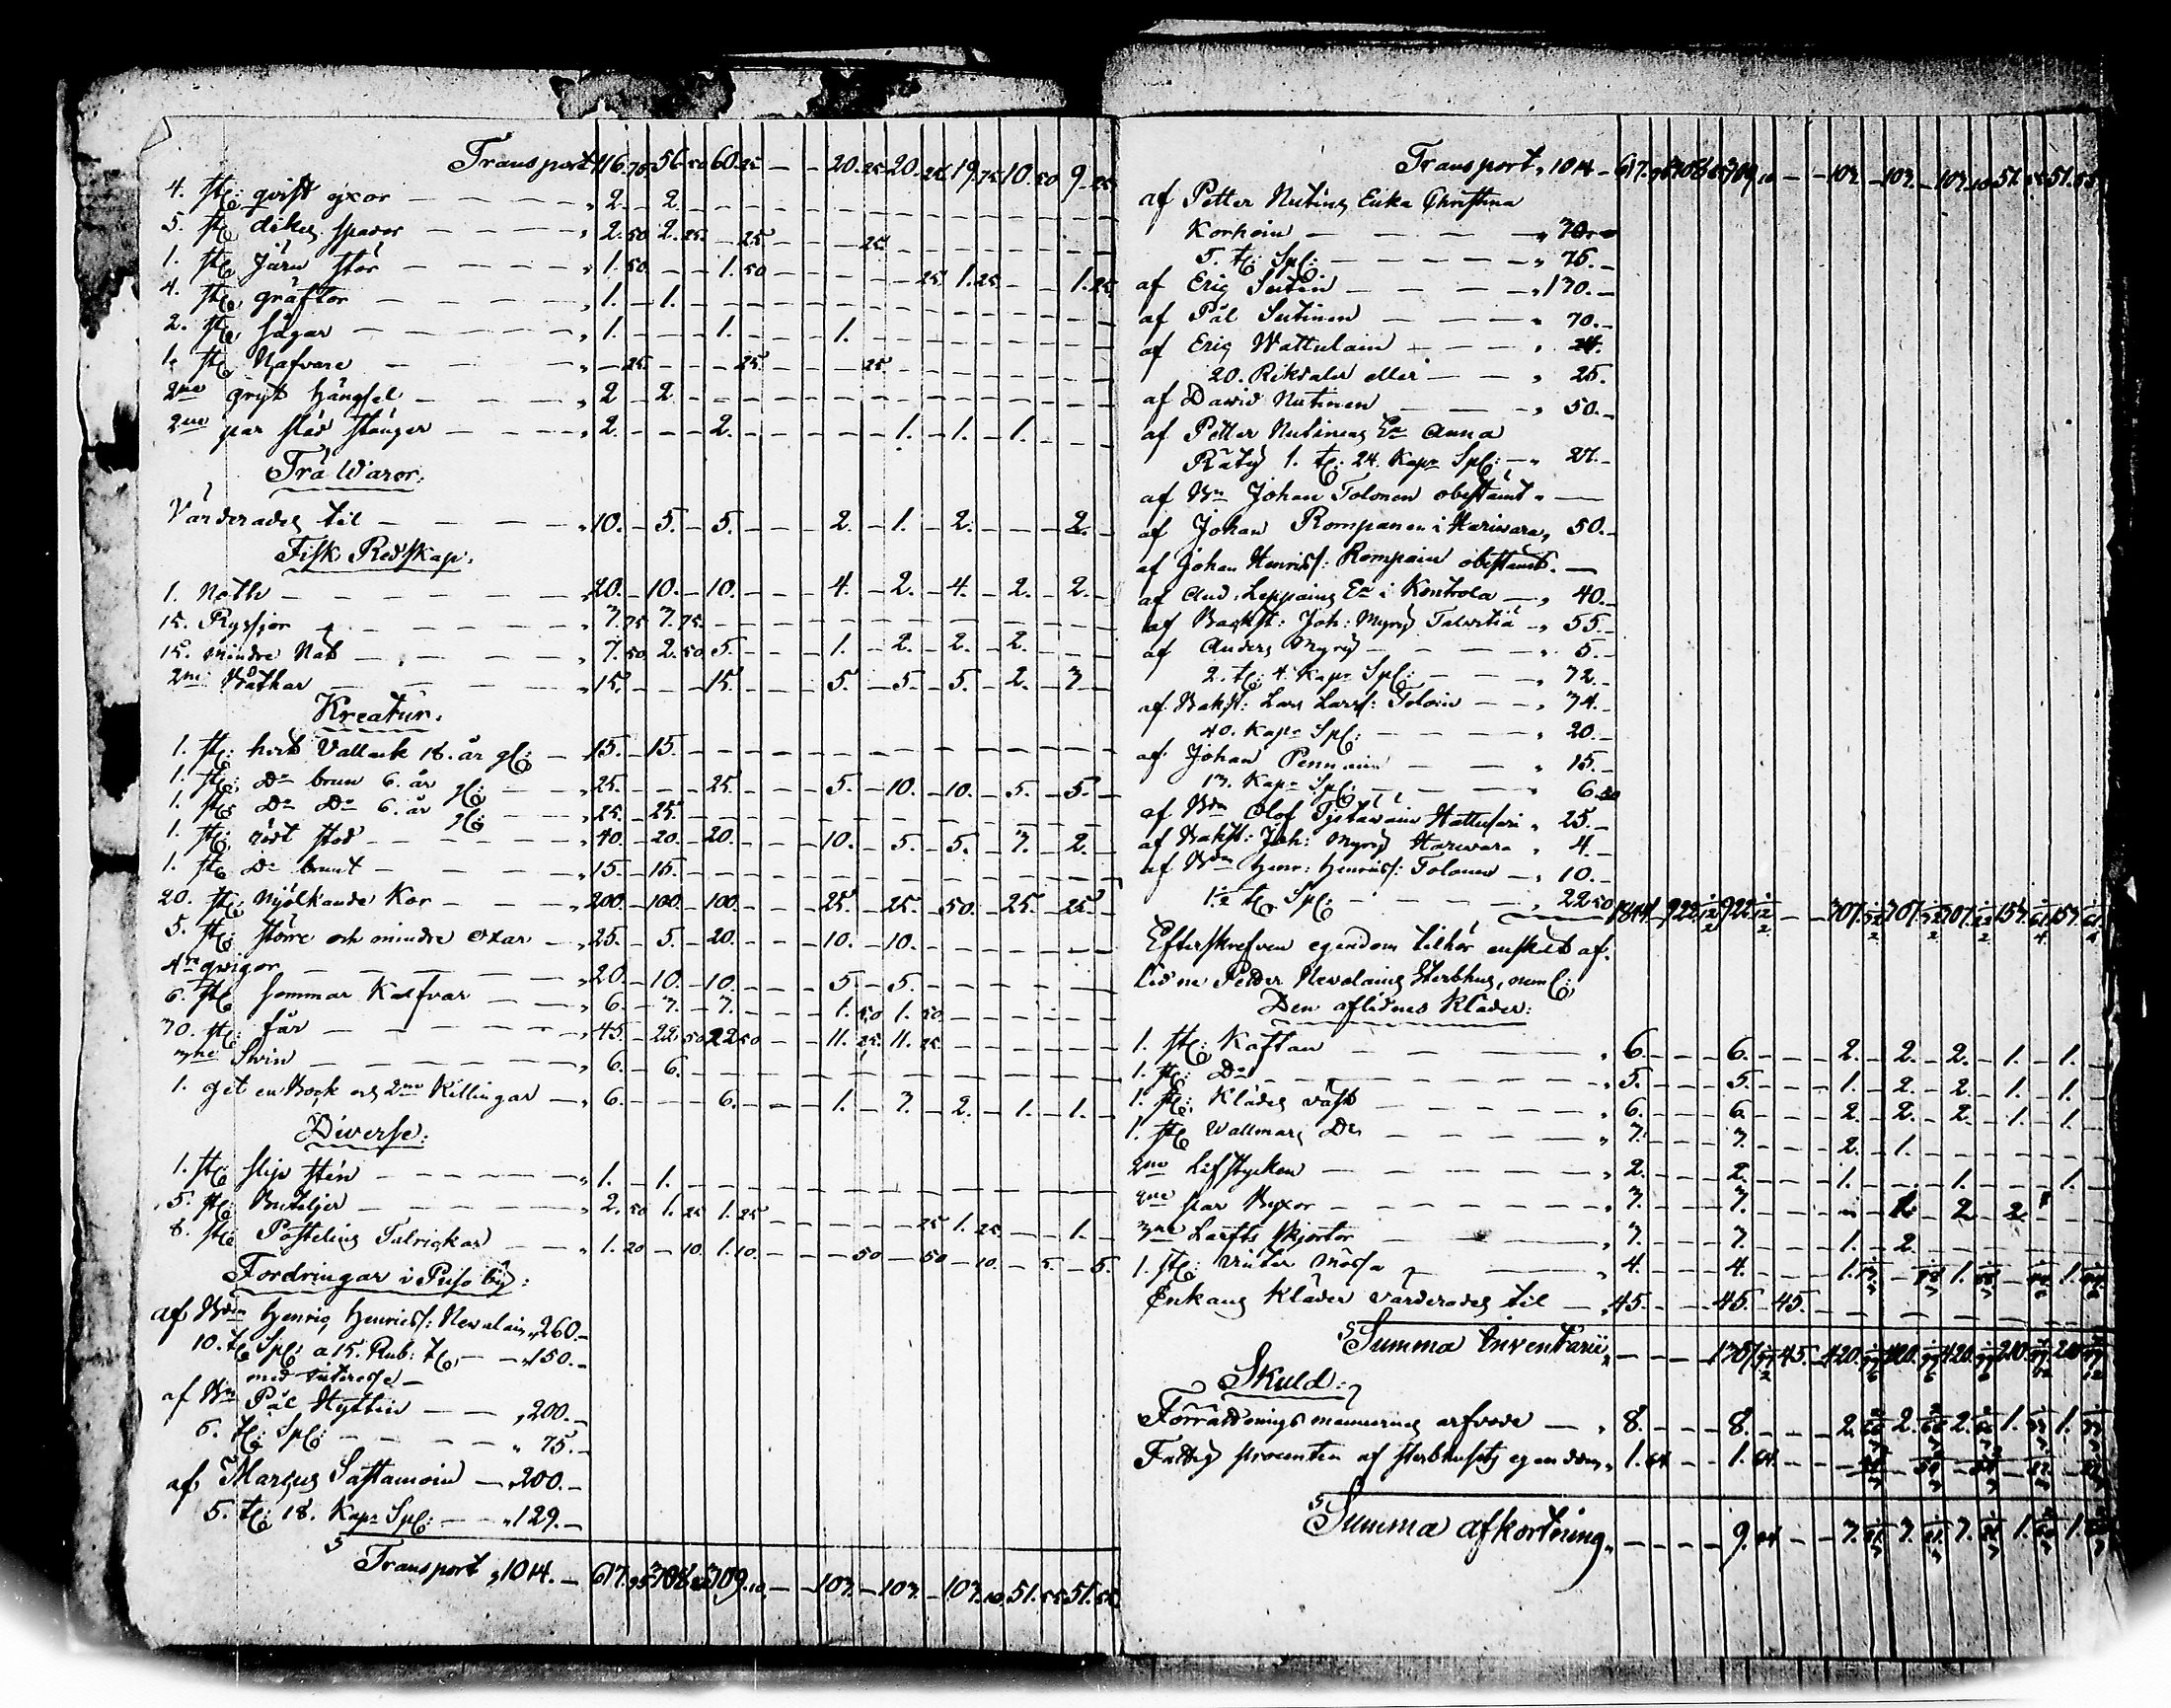 Transport 116.75 56.50 60.25 — — 20.25 20.25 19.75 10.50 9.25
4. st: qvist yxor — 2. — 2.
5. st: dikes spador — 2.50 2.25 — 25 — 25
1. st: Järn stör — 1.50 — — 1.50 — — — 25 1.25 — — 1.25
4. st: gräftor — 1. — 1.
2. st: sågar — 1. — — — 1. — — — 1.
1. st: Nafvare — — 25 — — — 25 — — — 25
2ne gryt hängsel — 2 — 2
2ne par släd stänger — 2. — — — 2. — — — — — 1. — 1. — 1.
Trä Waror:
Värderades til — 10. — 5. — 5. — — — 2. — 1. — 2. — — — 2. —
Fisk Redskap.
1. Noth — 20. — 10. — 10. — — — 4. — 2. — 4. — 2. — 2. —
15. Ryssjor — 3.75 3.75
15. mindre Nät — 7.50 2.50 5. — — — 1. — 2. — 2. — 2.
2ne Båthar — 15. — — — 15. — — — 5. — 5. — 5. — 2. — 3
Kreatur.
1. st: hvit Vallack 18. år gl: — 15. — 15.
1. st: Do brun 6. år gl: — 25. — — — 25. — — — 5. — 10. — 10. — 5. — 5. —
1. st: Do Do 6. år gl: — 25. — 25.
1. st: rödt stod — 40. — 20. — 20. — — — 10. — 5. — 5. — 3. — 2. —
1. st: Do brunt — 15. — 15.
20. st: Mjölkande Kor — 200. — 100. — 100. — — — 25. — 25. — 50. — 25. — 25. —
5. st: större och mindre oxar — 25. — 5. — 20. — — — 10. — 10.
4ra qvigor — 20. — 10. — 10. — — — 5. — 5.
6. st: sommar Kalfvar — 6. — 3. — 3. — — — 1.50 1.50
30. st: får — 45. — 22.50 22.50 — — 11.25 11.25
3ne Svin — 6. — 6.
1. get en Bock och 2ne Killingar — 6. — — — 6. — — — 1. — 3. — 2. — 1. — 1. —
Diverse:
1. st: slip sten — 1. — 1.
5. st: Buteljer — 2.50 1.25 1.25 — — — 25 1.25 — — 1. —
8. st: Postelins Talrickar — 1.20 — 10. 1.10. — — — 50 — 50 — 10. — 5. — 5.
Fordringar i Puso by:
af Bdn Henric Henricss: Nevalain „ 260. —
10. t: Spl: a 15. Rub: t: — „ 150. —
med interesse —
af Bn Pål Hyttin — „ 200. —
5. t: Spl: — „ 75. —
af Marcus Sastamoin — „ 200. —
5. t: 18. Kapr Spl: — „ 129. —
Transport „ 1014. — 617.95 308.85 309.10. — — 103. — 103. — 103.10. 51.55 51.55
Transport „ 1014 — 617.95 308.85 309.10 — — 103. — 103. — 103.10 51.55 51.55
af Petter Nutins Enka Christina
Korhoin — „ 30. —
5. t: Spl: — „ 75. —
af Eric — „ 130. —
af Pål — „ 70. —
af Eric Wattulain — „ 24.
20. Rikdaler eller — „ 25.
af David Nutinen — „ 50. —
af Petter Nutinens Ea Anna
Räty 1. t: 24. Kapr Spl: — „ 27. —
af Bn Johan Tolonen obestämt „ —
af Johan Rompanen i Hariwara „ 50. —
af Johan Henricss: Rompain obestämt. —
af And: Leppains Ea i Kontrola — „ 40. —
af Backst: Joh: Myry — „ 55. —
af Anders Myry — „ 5. —
2. t: 4. Kapr Spl: — „ 32. —
af Bakst: Lars Larss: Toloin — „ 34. —
40. Kapr Spl: — „ 20. —
af Johan Pennain — „ 15. —
13. Kapr Spl: — „ 6.50
af Bdn Olof Hattusari „ 25. —
af Bakst: Joh: Myry Harewara „ 4. —
af Bdn Henr: Henricss: Tolonen — „ 10. —
1 1/2 t: Spl: — „ 22.50 1844. — 922. 1/2 922. 1/2 — — 307. 307. 307. 153. 153.
Efterskrefven egendom tilhör enskilt af:
lidne Petter Nevalains Sterbhus, neml:
Den aflidnes Kläder:
1. st: Kaftan — „ 6. — — — 6. — — — 2. — 2. — 2. — 1. — 1. —
1. st: Do — „ 5. — — — 5. — — — 1. — 2. — 2. — 1. — 1.
1. st: Klädes väst — „ 6. — — — 6. — — — 2. — 2. — 2. — 1. — 1.
1. st: Wallmars Do — „ 3. — — — 3. — — — 2. — 1.
2ne Lifstycken — „ 2. — — — 2. — — — 1. — — — 1. — — — 1.
2ne par Byxor — „ 7. — — — 7. — — — — — 1. — 2 — 2
3ne Lärfts skjortor — „ 3. — — — 3. — — — 1. — 2.
1. st: vinter mössa — „ 4. — — — 4. — — — 1. — — 1. — — 1.
Enkans Kläder värderades til — „ 45. — — — 45. — 45. —
Summa Inventarii „ — — — — 1307. 45. — 420. 420. 420. 210. 210.
Skuld:
Förrättningsmannens arfvode — „ 8. — — — 8. — — — 2. 2. 2. 1. 1.
Fattig procenten af sterbhusets egendom „ 1.64 — — 1.64
Summa afkortning „ — — — — 9.64 — — 3. 3. 3. 1. 1.